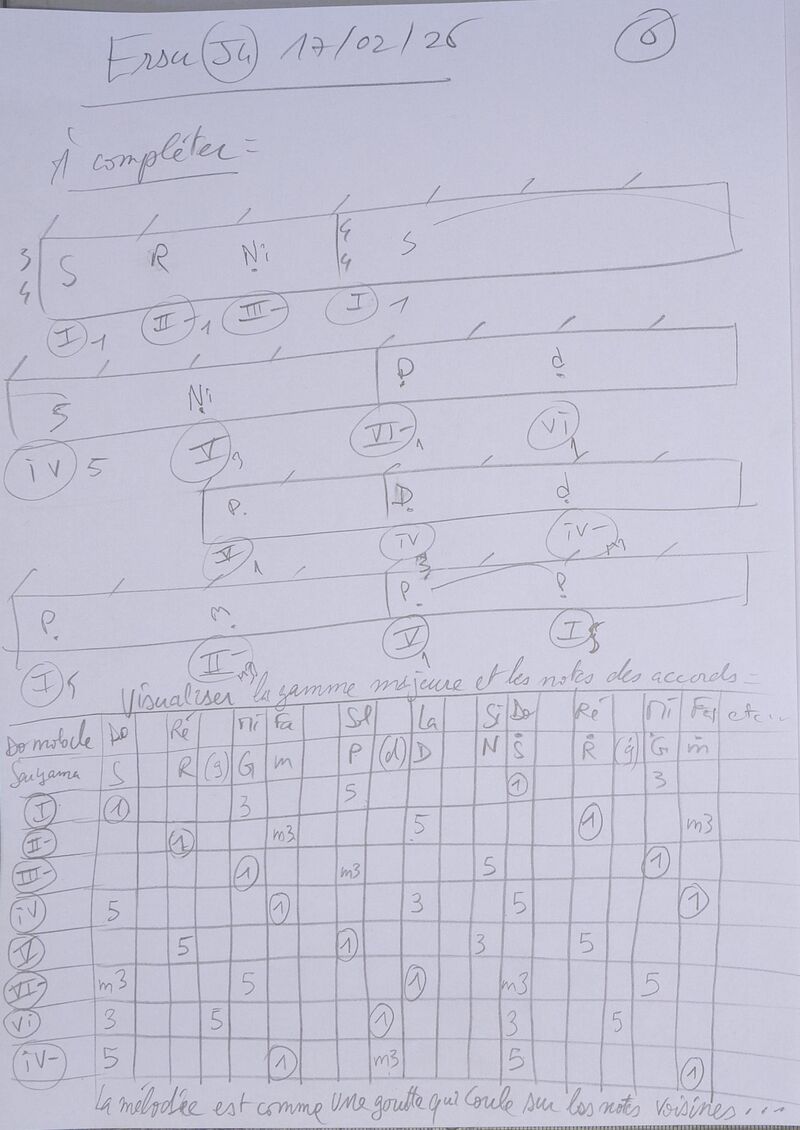 Ersu J4 17/02/26 6
À compléter =
3 4 S R Ni 4 4 S
I 1 II- 1 III- I 1
S Ni D d
IV 5 V 3 VI- 1 VI 1
P D d
V 1 IV 3 IV- m3
P m P P
I 5 II- m3 V 1 I 5
Visualiser la gamme majeure et les notes des accords =
Do mobile Do Ré Mi Fa Sol La Si Do Ré Mi Fa etc...
Sargama S R (g) G m P (d) D N S R (g) G m
I 1 3 5 1 3
II- 1 m3 5 1 m3
III- 1 m3 5 1
IV 5 1 3 5 1
V 5 1 3 5
VI- m3 5 1 m3 5
VI 3 5 1 3 5
IV- 5 1 m3 5 1
La mélodie est comme une goutte qui coule sur les notes voisines ....